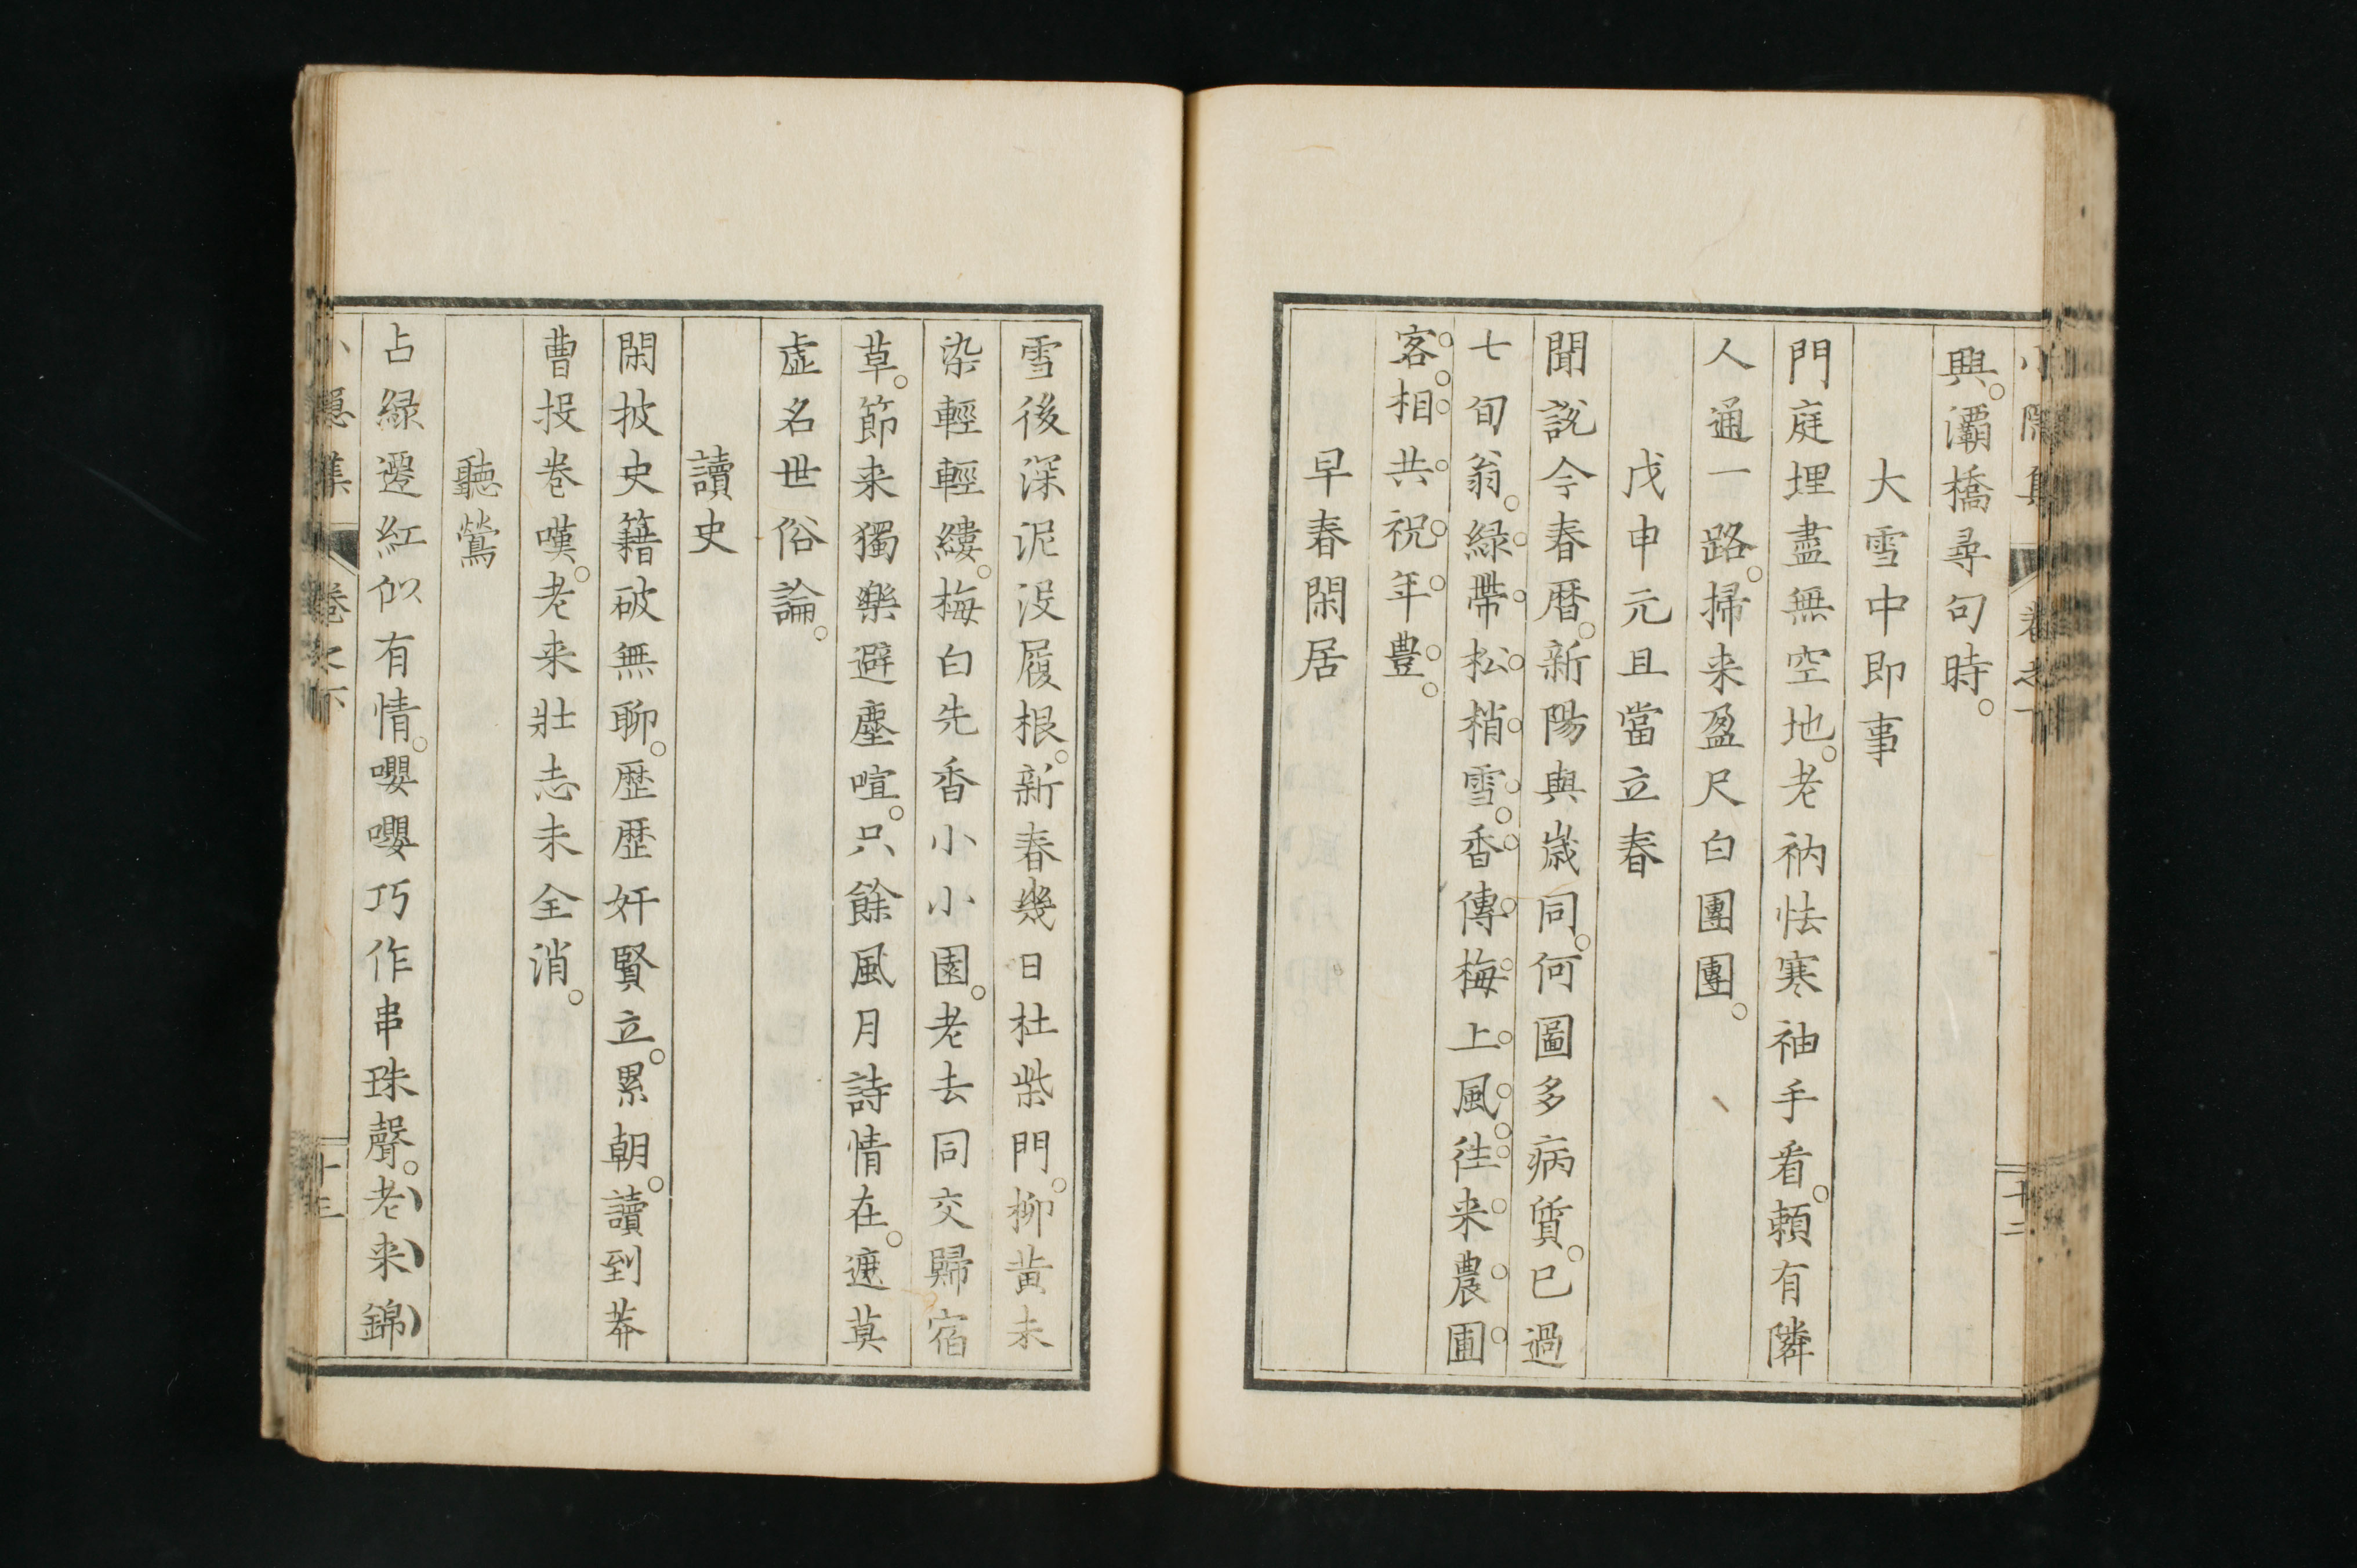 興。灞橋尋句時。
大雪中即事
門庭埋盡無空地。老衲怯寒袖手看。頼有隣
人通一路。掃来盈尺白團團。
戊申元旦當立春
聞説今春暦。新陽與歳同。何圖多病質。已過
七旬翁。緑帶松梢雪。香傳梅上風。徃来農圃
客。相共祝年豊。
早春閑居
雪後深泥没履根。新春幾日杜柴門。柳黄未
染輕輕縷。梅白先香小小園。老去同交歸宿
草。節来獨樂避塵喧。只餘風月詩情在。遮莫
虚名世俗論。
讀史
閑披史籍破無聊。歴歴奸賢立累朝。讀到莽
曹投巻嘆。老来壯志未全消。
聽鶯
占緑遷紅似有情。嚶嚶巧作串珠聲。老来錦
小隠集 巻之下 十三